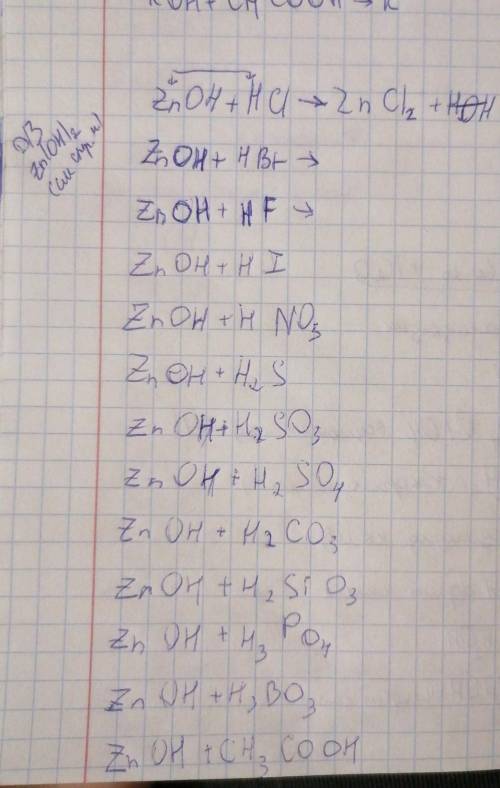 KOH + CH3COOH → K
ZnOH + HCl → ZnCl2 + HOH
ДЗ
Zn(OH)2
ZnOH + HBr →
ZnOH + HF →
ZnOH + HI
ZnOH + HNO3
ZnOH + H2S
ZnOH + H2SO3
ZnOH + H2SO4
ZnOH + H2CO3
ZnOH + H2SiO3
ZnOH + H3PO4
ZnOH + H3BO3
ZnOH + CH3COOH